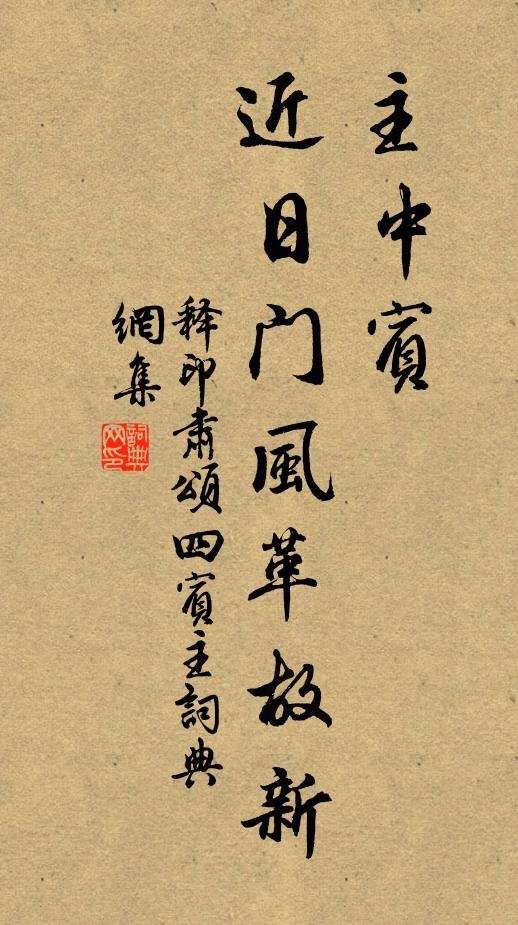 主中賓
近日門風革故新
释印肅頌四賓主詞典
網集
詞典網印